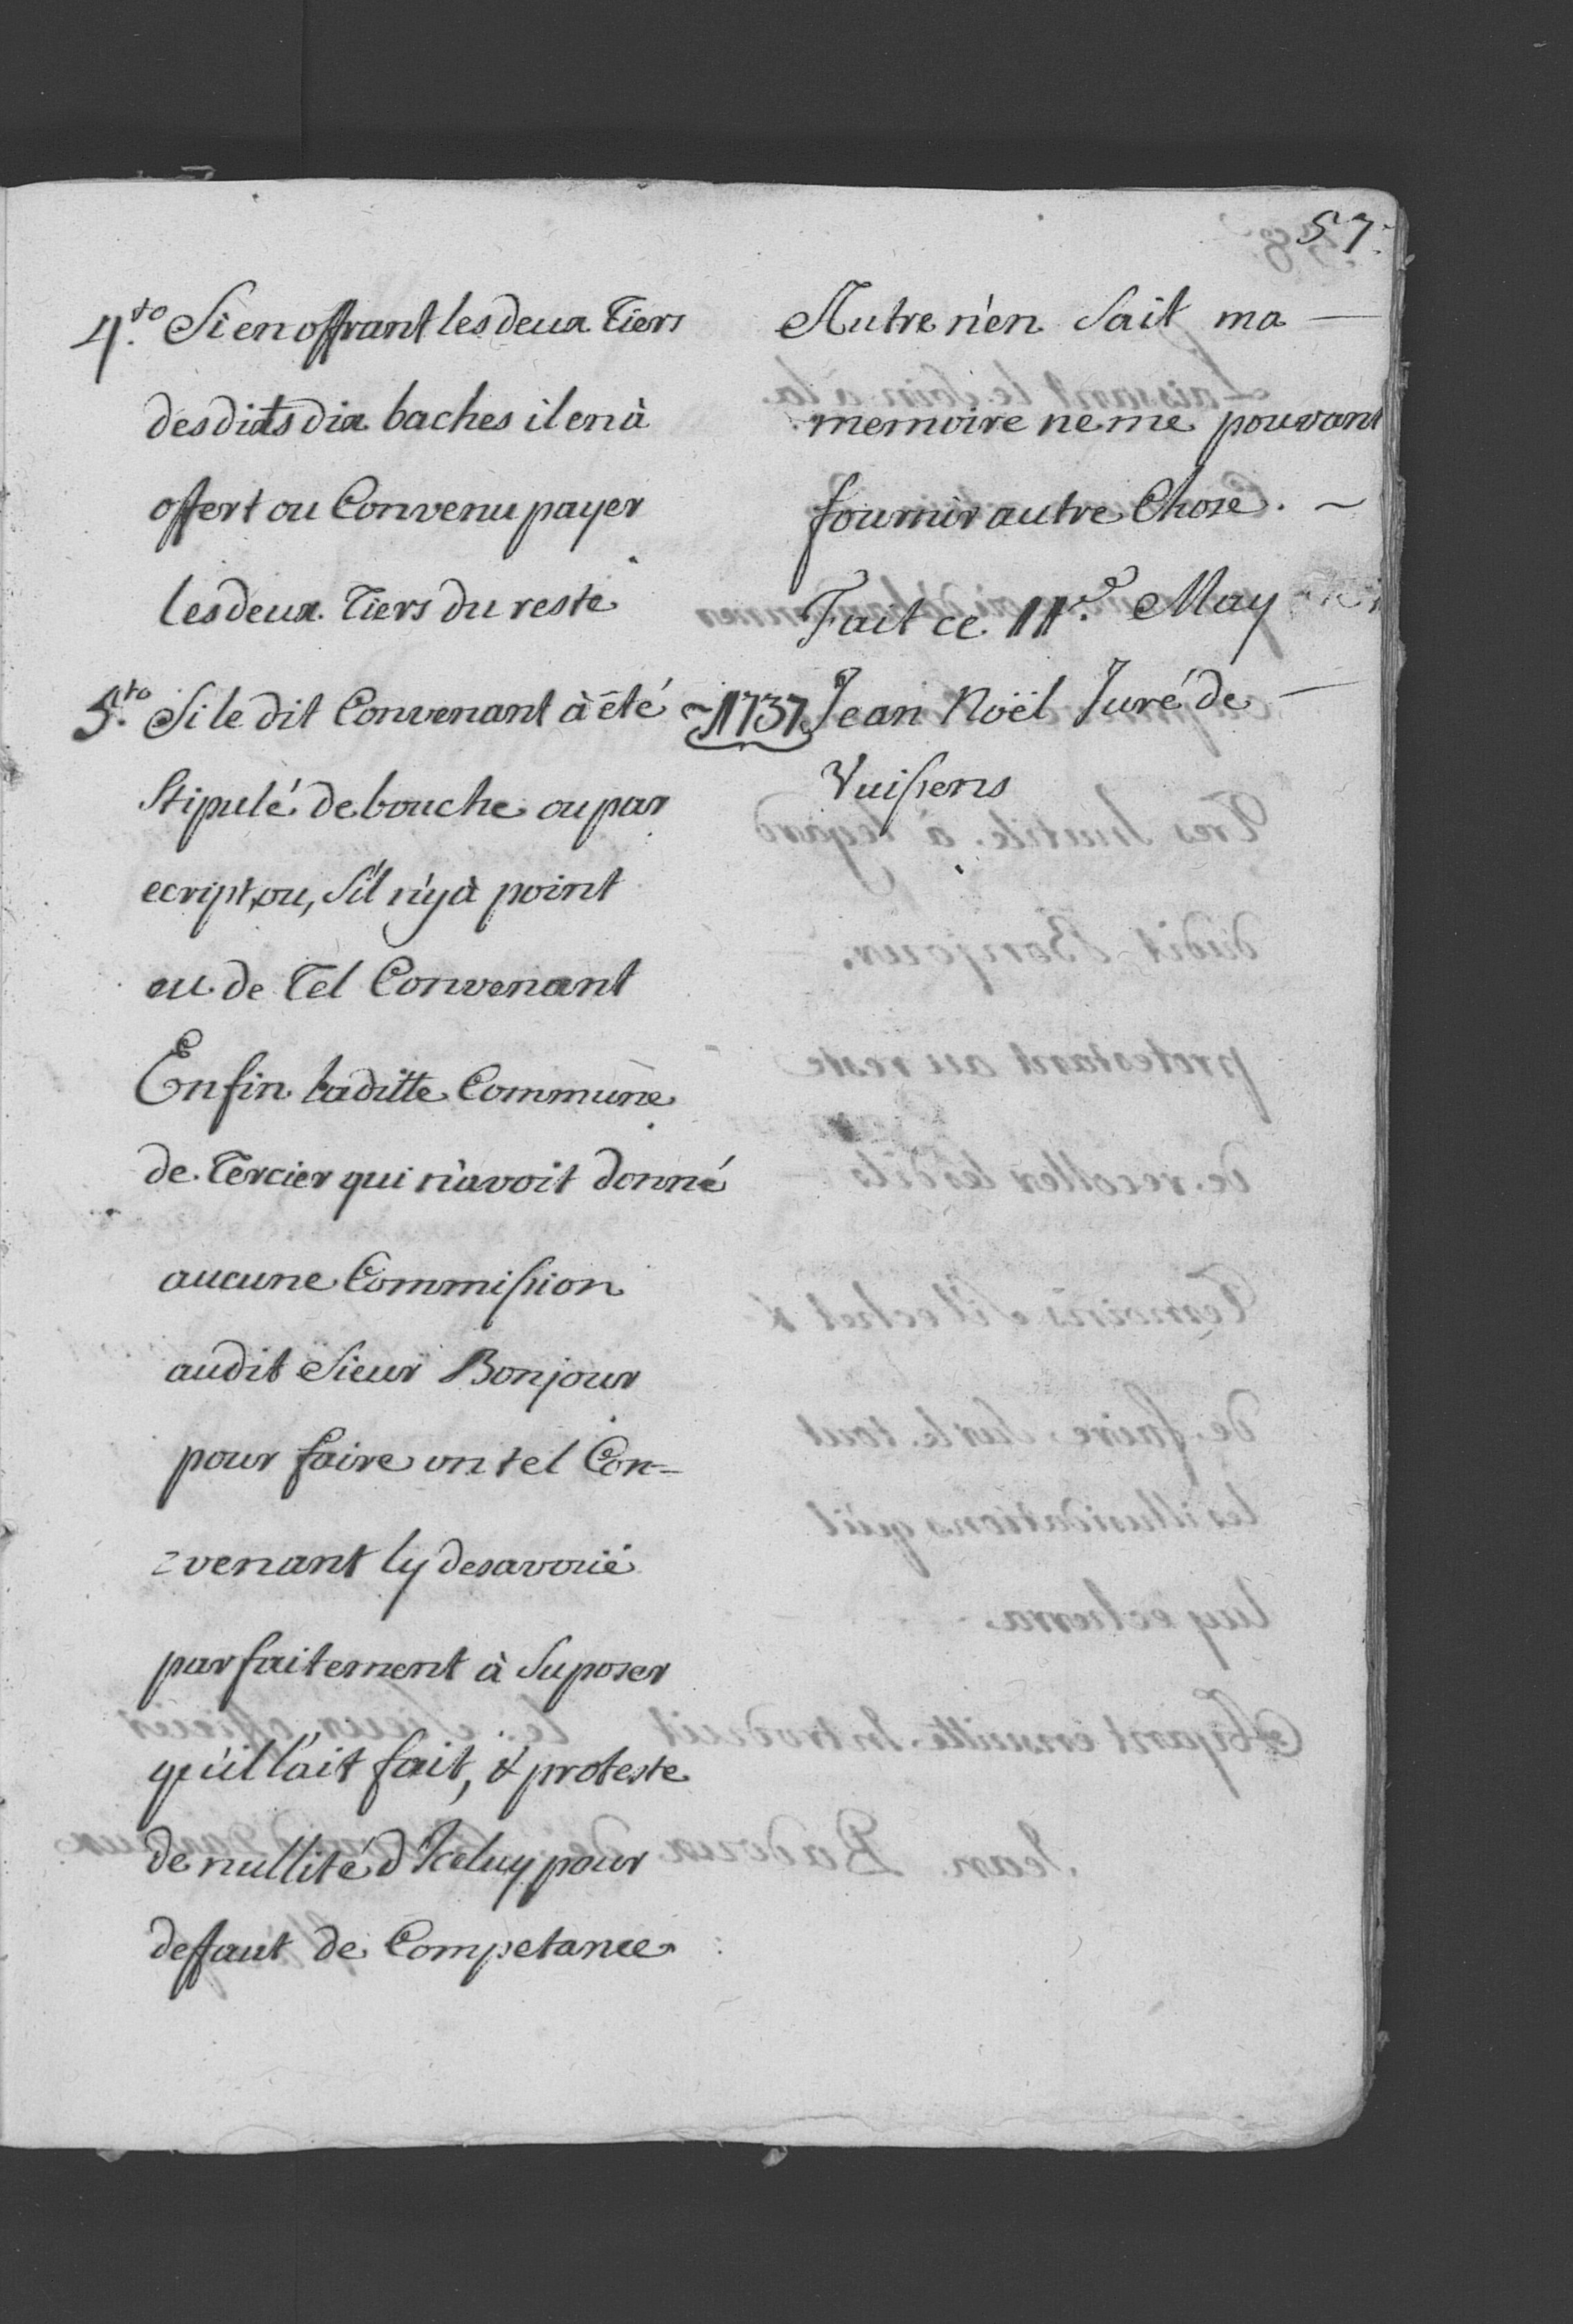 57.
4.to Si en offrant les deux Tiers
des dits dix baches il en à
offert ou Convenu payer
les deux Tiers du reste
5.to Si le dit Convenant à été
Stipulé de bouche ou par
ecript, ou, S'il n'y à point
eu de Tel Convenant
Enfin laditte Commune
de Tercier qui n'avoit donné
aucune Commission
audit Sieur Bonjour
pour faire un tel Con=
=venant ly desavouë
parfaitement à Suposer
qu'il l'ait fait, & proteste
de nullité d'Iceluy pour
deffaut de Competance
Autre n'en Sait ma —
memoire ne me pouvant
fournir autre Chose. ~
Fait ce 11.e May
~1737. Jean Noël Juré de —
Vuissens